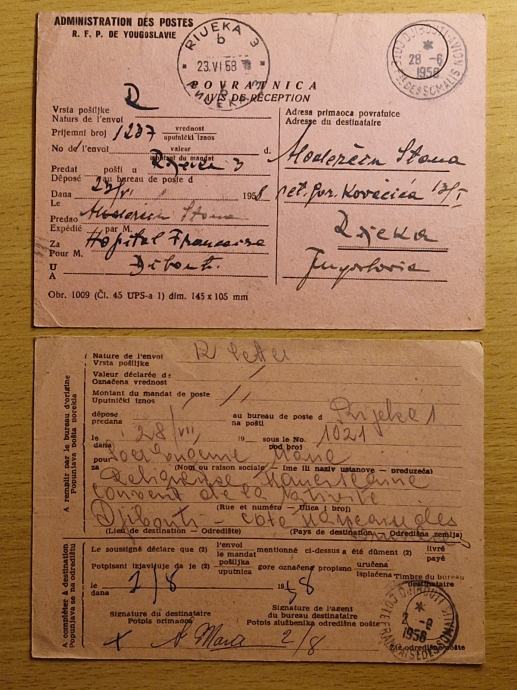 ADMINISTRATION DES POSTES
R. F. P. DE YOUGOSLAVIE
RIJEKA 3
b
23.VI 58
РИЈЕКА 3
POVRATNICA
AVIS DE RÉCEPTION
DJIBOUTI-AVION
*
28 -6
1958
CÔTE FSE DES SOMALIS
Vrsta pošiljke
Naturs de l'envol
R
Prijemni broj 1237 vrednost
uputnički iznos
No de l'envol valeur d.
montant du mandat
Predat pošti u Rijeka 3
Déposé au bureau de poste d
Dana 23/VI 1958
Le
Predao Moderčin Stana
Expédié par M.
Za Hopital Francaise
Pour M.
U Djibouti
A
Obr. 1009 (Čl. 45 UPS-a 1) dim. 145 x 105 mm
Adresa primaoca povratnice
Adresse du destinataire
Moderčin Stana
Kovačića 13/I
Rijeka
Jugoslavia
A remplir par le bureau d'origine
Popunjava pošta porekla
Nature de l'envoi
Vrsta pošiljke
R letter
Valeur déclarée d:
Označena vrednost
Montant du mandat de poste
Uputnički iznos
dépose au bureau de poste d Rijeka 1
predana na pošti
le 28/VII 19 sous le No. 1021
dana pod broj
pour Marie
za (Nom ou raison sociale - Ime ili naziv ustanove - preduzeća)
Religieuse Franciscaine
Convent de la Nativité
(Rue et numéro - Ulica i broj)
Djibouti - Côte Française des
Somalis
(Lieu de destination - Odredište) (Pays de destination - Odredišna zemlja)
A compléter à destination
Popunjava se na odredištu
Le soussigné déclare que (2) l'envoi
le mandat mentionné ci-dessus a été dûment (2) livré
payé
Potpisani izjavljuje da je (2) pošiljka
uputnica gore označena propisno uručena
isplaćena
Timbre du bureau
destinataire
le 2/8 1958
dana
Signature du destinataire
Potpis primaoca
Signature de l'agent
du bureau destinataire
Potpis službenika odredišne pošte
x Mara 2/8
DJIBOUTI
*
2 -8
1958
CÔTE FRANÇAISE DES SOMALIS
odredišne pošte